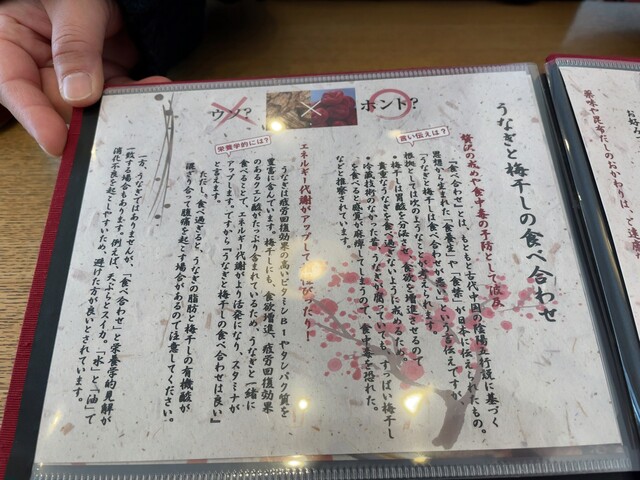 うなぎと梅干しの食べ合わせ
ウソ?
ホント?
言い伝えは?
贅沢の戒めや食中毒の予防として波及
「食べ合わせ」とは、もともと古代中国の陰陽五行説に基づく
思想から生まれた「食養生」や「食禁」が日本に伝えられたもの。
「うなぎと梅干しは食べ合わせが悪い」という言い伝えですが、
根拠としては次のようなことが考えられます。
・梅干しは胃酸を分泌させ、食欲を増進させるので
貴重なうなぎを食べ過ぎないように戒めるため。
・冷蔵技術のなかった昔、うなぎが腐っていても、すっぱい梅干し
を食べると感覚が麻痺してしまうので、食中毒を恐れた。
などと推察されています。
栄養学的には?
エネルギー代謝がアップして
ぴったり!
うなぎは疲労回復効果の高いビタミンB1やタンパク質を
豊富に含んでいます。梅干しにも、食欲増進、疲労回復効果
のあるクエン酸がたっぷり含まれているため、うなぎと一緒に
食べることで、エネルギー代謝がより活発になり、スタミナが
アップします。ですから「うなぎと梅干しの食べ合わせは良い」
と言えます。
ただし、食べ過ぎると、うなぎの脂肪と梅干しの有機酸が
混ざり合って腹痛を起こす場合があるので注意してください。
一方、うなぎではありませんが、「食べ合わせ」と栄養学的見解が
一致する場合もあります。例えば、天ぷらとスイカ。「水」と「油」で
消化不良を起こしやすいため、避けた方が良いとされています。
お好
薬味や昆布だしのおかわりは、ご遠